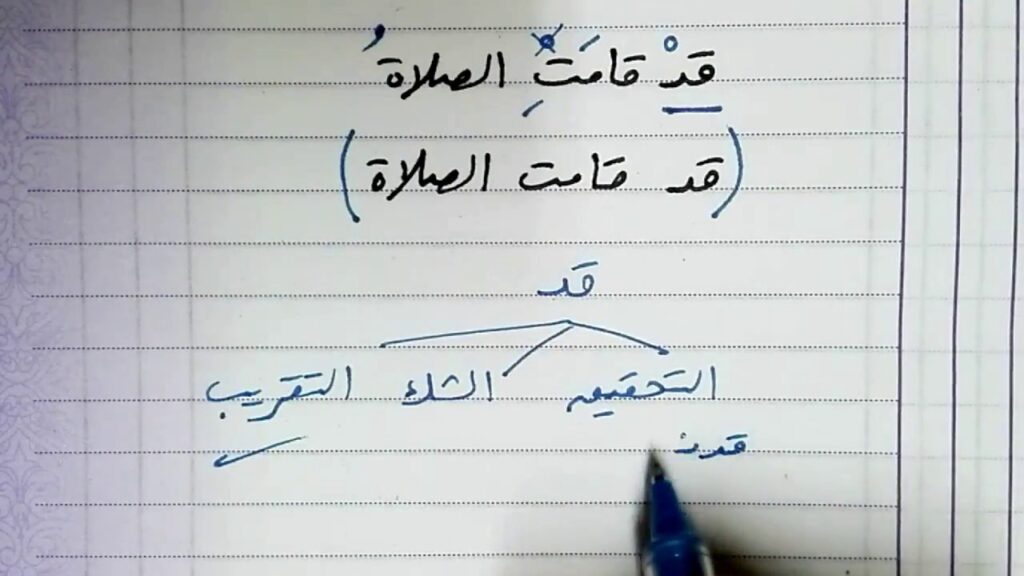 قدْ قامَتِْ الصلاةُ
(قد قامت الصلاة)
قد
التحقيق الشك التقريب